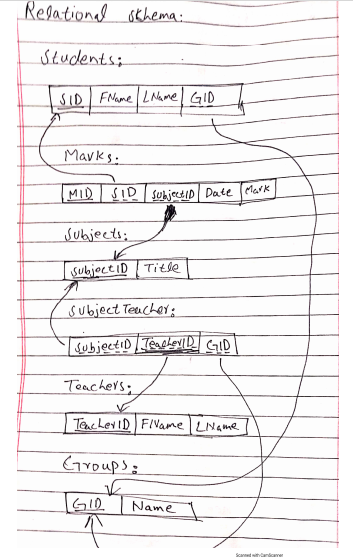 Relational schema:
Students:
SID FName LName GID
Marks:
MID SID SubjectID Date Mark
Subjects:
SubjectID Title
SubjectTeacher:
SubjectID TeacherID GID
Teachers:
TeacherID FName LName
Groups:
GID Name
Scanned with CamScanner